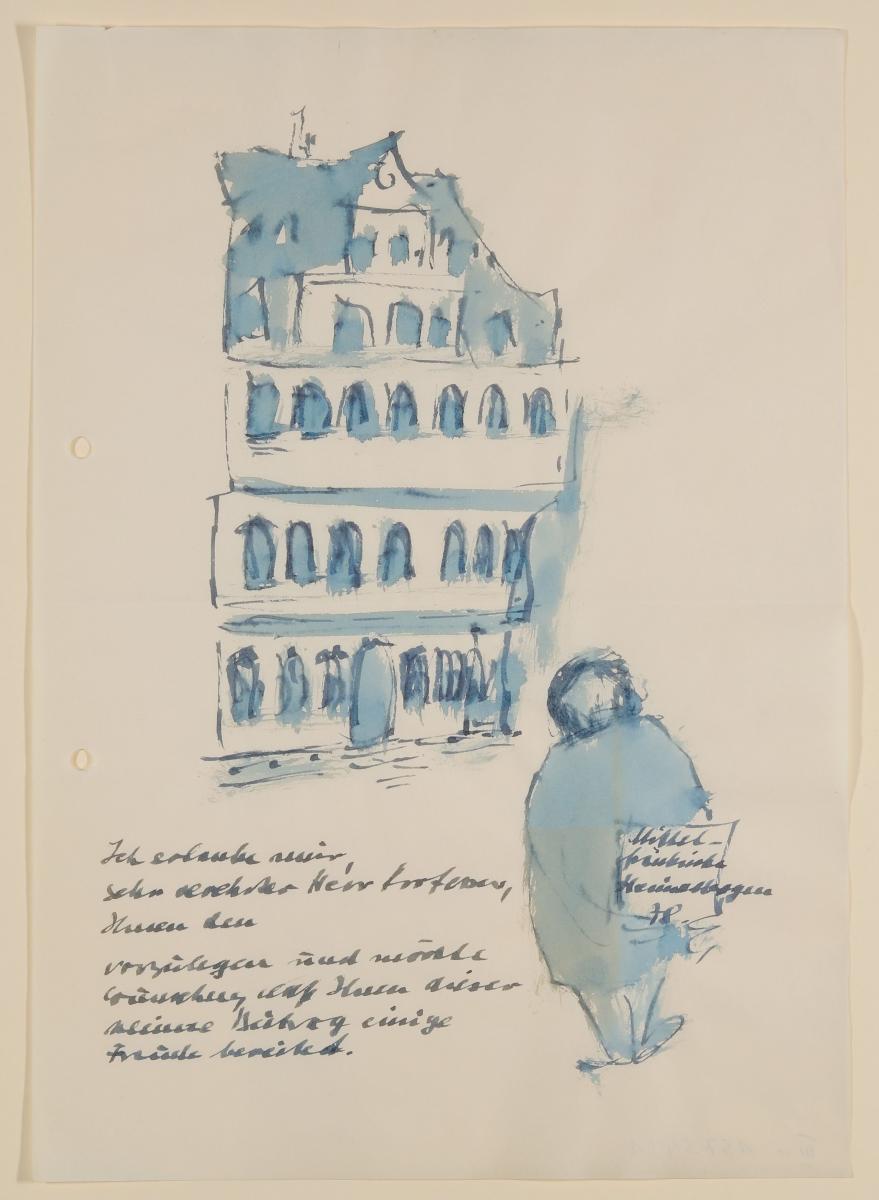 Ich erlaube mir,
sehr verehrter Herr Professor,
Ihnen den
vorzulegen und möchte
wünschen, daß Ihnen dieser
kleine Beitrag einige
Freude bereitet.
Mittel-
fränkische
Heimatbogen
78